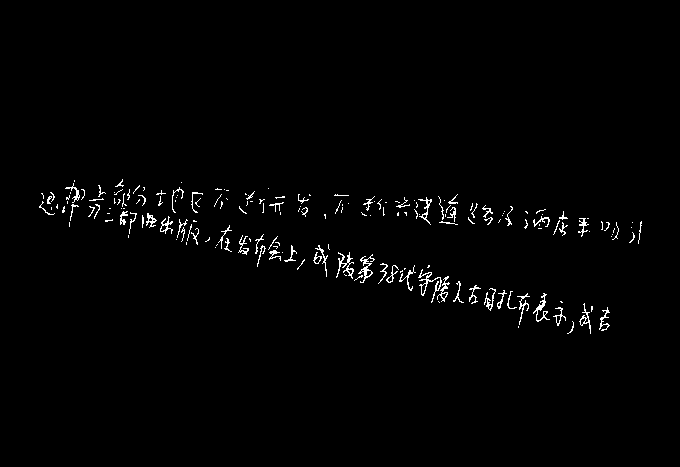 部分地区不断开发、不断兴建道路及酒店来吸引
三部曲出版,在发布会上,成陵第38代守陵人古日扎布表示,成吉